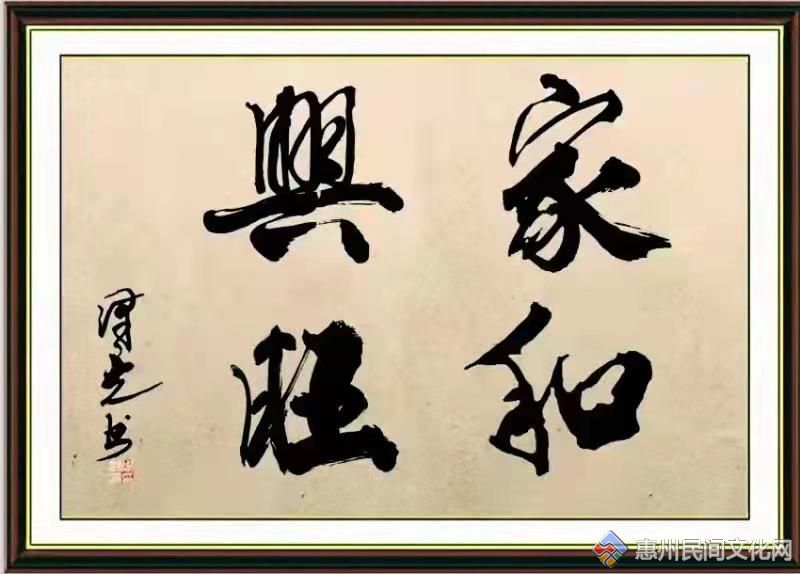 家和
興旺
书
惠州民间文化网